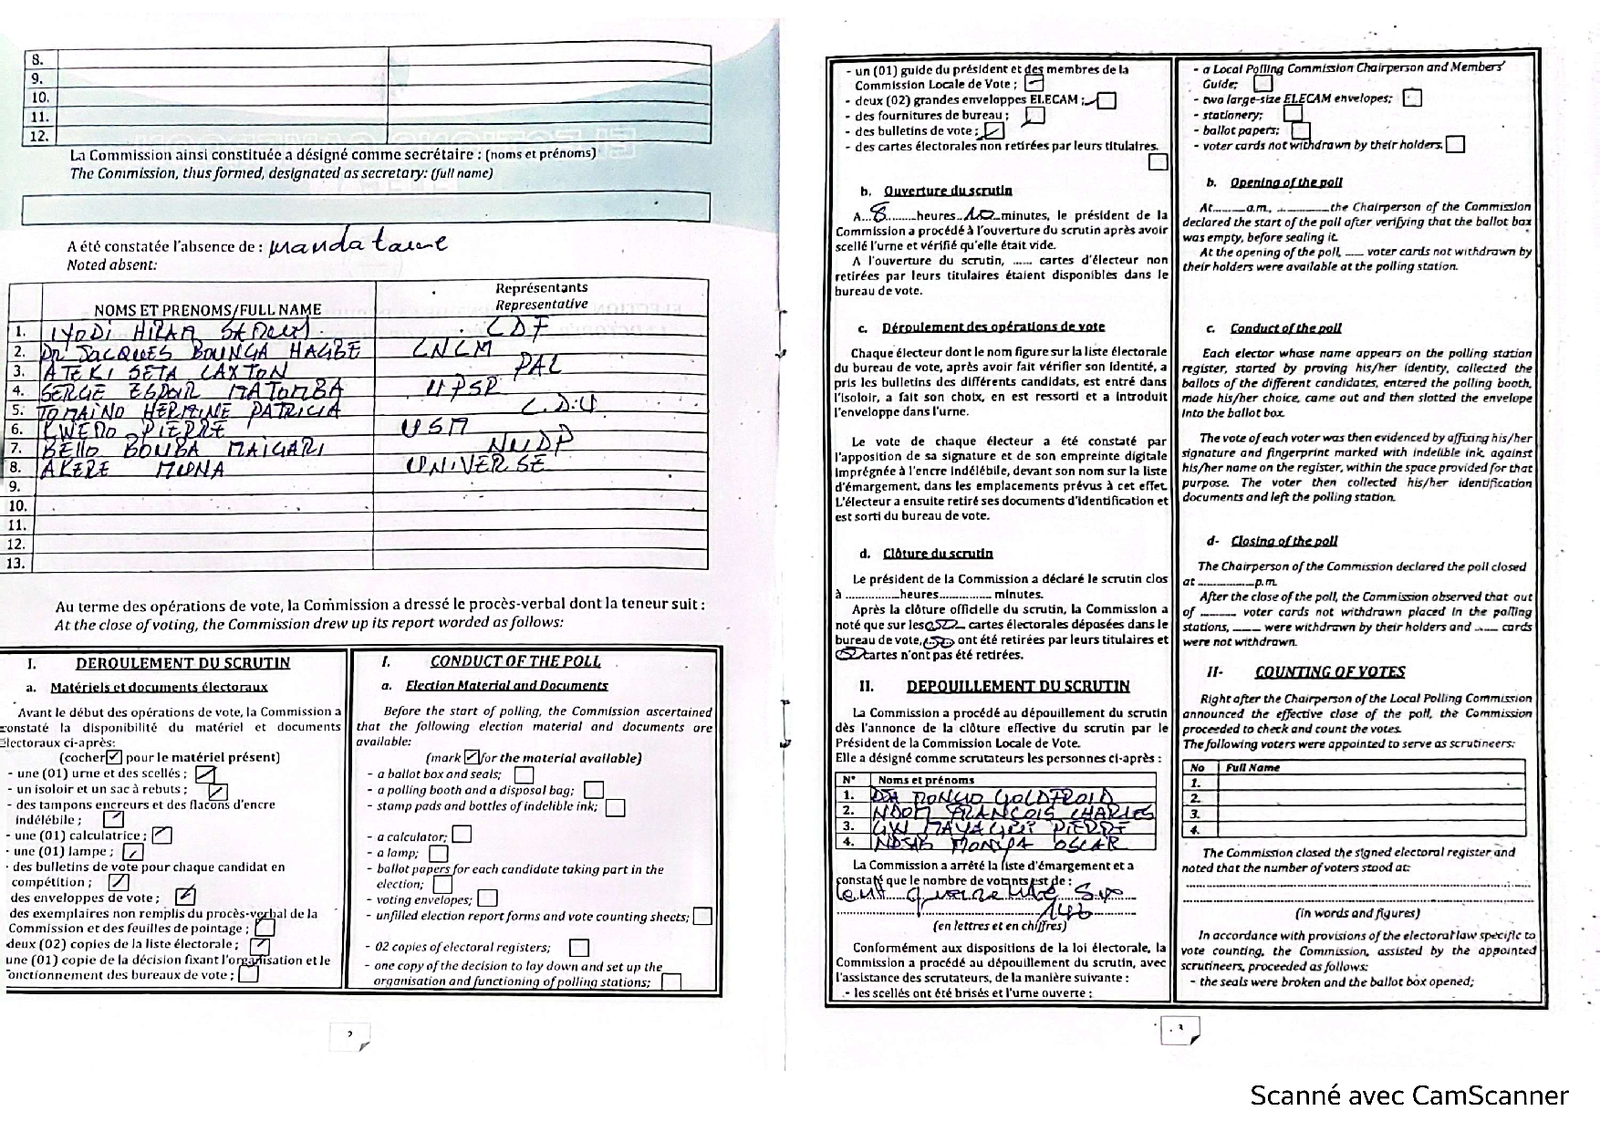 8.
9.
10.
11.
12.
La Commission ainsi constituée a désigné comme secrétaire : (noms et prénoms)
The Commission, thus formed, designated as secretary: (full name)
A été constatée l'absence de : mandataire
Noted absent:
NOMS ET PRENOMS/FULL NAME
Représentants
Representative
1. IYODI HIRAM SAMUEL CDF
2. Dr JACQUES BOUNGA HAGBE CNCM
3. ATEKI SETA CAXTON PAL
4. SERGE ESPOIR MATOMBA UPSR
5. TOMAINO HERMINE PATRICIA C.D.U
6. KWEMO PIERRE USM
7. BELLO BOUBA MAIGARI NUDP
8. AKERE MUNA UNIVERSE
9.
10.
11.
12.
13.
Au terme des opérations de vote, la Commission a dressé le procès-verbal dont la teneur suit :
At the close of voting, the Commission drew up its report worded as follows:
I. DEROULEMENT DU SCRUTIN
a. Matériels et documents électoraux
Avant le début des opérations de vote, la Commission a
constaté la disponibilité du matériel et documents
électoraux ci-après:
(cocher ☑ pour le matériel présent)
- une (01) urne et des scellés ;
- un isoloir et un sac à rebuts ;
- des tampons encreurs et des flacons d'encre
indélébile ;
- une (01) calculatrice ;
- une (01) lampe ;
- des bulletins de vote pour chaque candidat en
compétition ;
des enveloppes de vote ;
des exemplaires non remplis du procès-verbal de la
Commission et des feuilles de pointage ;
deux (02) copies de la liste électorale ;
une (01) copie de la décision fixant l'organisation et le
fonctionnement des bureaux de vote ;
I. CONDUCT OF THE POLL
a. Election Material and Documents
Before the start of polling, the Commission ascertained
that the following election material and documents are
available:
(mark ☑ for the material available)
- a ballot box and seals;
- a polling booth and a disposal bag;
- stamp pads and bottles of indelible ink;
- a calculator;
- a lamp;
- ballot papers for each candidate taking part in the
election;
- voting envelopes;
- unfilled election report forms and vote counting sheets;
- 02 copies of electoral registers;
- one copy of the decision to lay down and set up the
organisation and functioning of polling stations;
2
- un (01) guide du président et des membres de la
Commission Locale de Vote ;
- deux (02) grandes enveloppes ELECAM ;
- des fournitures de bureau ;
- des bulletins de vote ;
- des cartes électorales non retirées par leurs titulaires.
b. Ouverture du scrutin
A...8...heures...10...minutes, le président de la
Commission a procédé à l'ouverture du scrutin après avoir
scellé l'urne et vérifié qu'elle était vide.
A l'ouverture du scrutin, ...... cartes d'électeur non
retirées par leurs titulaires étaient disponibles dans le
bureau de vote.
c. Déroulement des opérations de vote
Chaque électeur dont le nom figure sur la liste électorale
du bureau de vote, après avoir fait vérifier son identité, a
pris les bulletins des différents candidats, est entré dans
l'isoloir, a fait son choix, en est ressorti et a introduit
l'enveloppe dans l'urne.
Le vote de chaque électeur a été constaté par
l'apposition de sa signature et de son empreinte digitale
imprégnée à l'encre indélébile, devant son nom sur la liste
d'émargement, dans les emplacements prévus à cet effet.
L'électeur a ensuite retiré ses documents d'identification et
est sorti du bureau de vote.
d. Clôture du scrutin
Le président de la Commission a déclaré le scrutin clos
à ..............heures............. minutes.
Après la clôture officielle du scrutin, la Commission a
noté que sur les cartes électorales déposées dans le
bureau de vote, ont été retirées par leurs titulaires et
cartes n'ont pas été retirées.
II. DEPOUILLEMENT DU SCRUTIN
La Commission a procédé au dépouillement du scrutin
dès l'annonce de la clôture effective du scrutin par le
Président de la Commission Locale de Vote.
Elle a désigné comme scrutateurs les personnes ci-après :
N° Noms et prénoms
1. GOLDFROID
2. NDOM FRANCOIS CHARLES
3. PIERRE
4. OSCAR
La Commission a arrêté la liste d'émargement et a
constaté que le nombre de votants est de :
Cent quarante six
146
(en lettres et en chiffres)
Conformément aux dispositions de la loi électorale, la
Commission a procédé au dépouillement du scrutin, avec
l'assistance des scrutateurs, de la manière suivante :
- les scellés ont été brisés et l'urne ouverte ;
- a Local Polling Commission Chairperson and Members'
Guide;
- two large-size ELECAM envelopes;
- stationery;
- ballot papers;
- voter cards not withdrawn by their holders.
b. Opening of the poll
At........a.m., ............the Chairperson of the Commission
declared the start of the poll after verifying that the ballot box
was empty, before sealing it.
At the opening of the poll, ...... voter cards not withdrawn by
their holders were available at the polling station.
c. Conduct of the poll
Each elector whose name appears on the polling station
register, started by proving his/her identity, collected the
ballots of the different candidates, entered the polling booth,
made his/her choice, came out and then slotted the envelope
into the ballot box.
The vote of each voter was then evidenced by affixing his/her
signature and fingerprint marked with indelible ink, against
his/her name on the register, within the space provided for that
purpose. The voter then collected his/her identification
documents and left the polling station.
d- Closing of the poll
The Chairperson of the Commission declared the poll closed
at ..................p.m.
After the close of the poll, the Commission observed that out
of .......... voter cards not withdrawn placed in the polling
stations, ........ were withdrawn by their holders and ...... cards
were not withdrawn.
II- COUNTING OF VOTES
Right after the Chairperson of the Local Polling Commission
announced the effective close of the poll, the Commission
proceeded to check and count the votes.
The following voters were appointed to serve as scrutineers:
No Full Name
1.
2.
3.
4.
The Commission closed the signed electoral register and
noted that the number of voters stood at:
(in words and figures)
In accordance with provisions of the electoral law specific to
vote counting, the Commission, assisted by the appointed
scrutineers, proceeded as follows:
- the seals were broken and the ballot box opened;
3
Scanné avec CamScanner